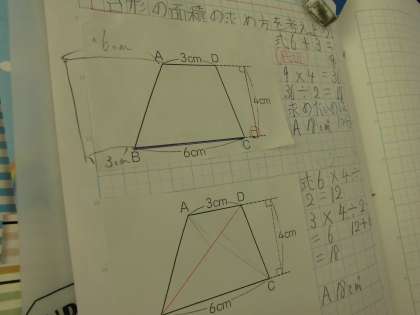 台形の面積の求め方を考えよう
式6+3=
9
9×4=36
36÷2=18
A 18cm²
6cm
A 3cm D
4cm
3cm
B 6cm C
式6×4÷
2=12
3×4÷2
=6 12+
=18
A 18cm²
A 3cm D
4cm
6cm C